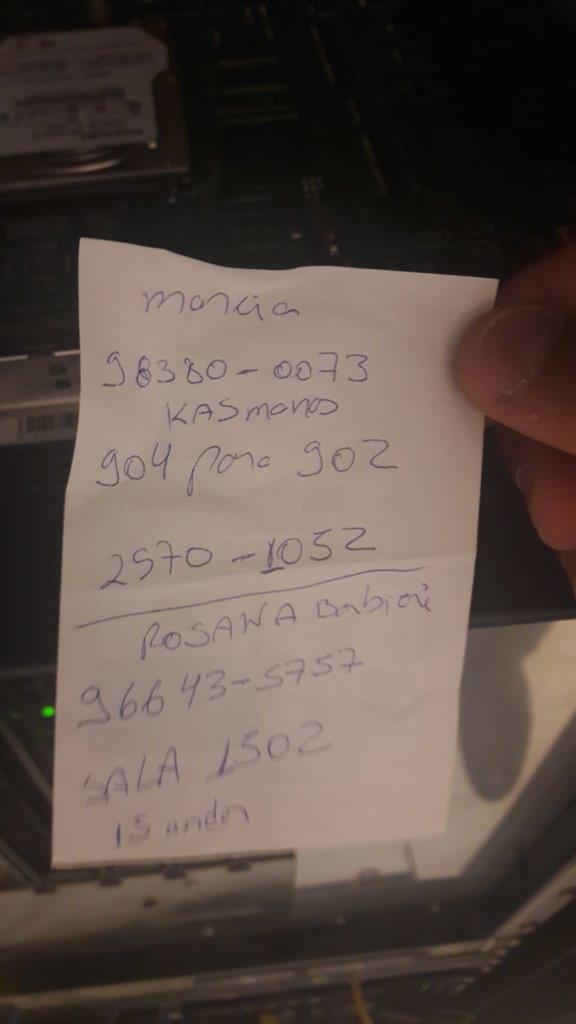 marcia
98380-0073
KASmanas
904 para 902
2570-1052
ROSANA Barbieri
96643-5757
SALA 1502
15 andar